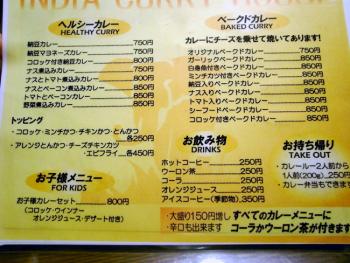 INDIA CURRY HOUSE
ヘルシーカレー
HEALTHY CURRY
納豆カレー 750円
納豆マヨネーズカレー 750円
コロッケ付き納豆カレー 800円
ナス煮込みカレー 750円
ナスとトマト煮込みカレー 800円
ナスとベーコン煮込みカレー 850円
トマトとベーコンカレー 850円
野菜煮込みカレー 850円
トッピング
・コロッケ・ミンチかつ・チキンかつ・とんかつ
各250円
・アレンジとんかつ・チーズチキンカツ
・エビフライ 各450円
お子様メニュー
FOR KIDS
お子様カレーセット 800円
(コロッケ・ウインナー
オレンジジュース・デザート付き)
ベークドカレー
BAKED CURRY
カレーにチーズを乗せて焼いてあります!
オリジナルベークドカレー 850円
ガーリックベークドカレー 850円
白身魚付きベークドカレー 850円
ミンチカツ付きベークドカレー 850円
納豆入りベークドカレー 850円
ナス入りベークドカレー 850円
トマト入りベークドカレー 850円
シーフードベークドカレー 850円
ベーコン入りベークドカレー 850円
お飲み物
DRINKS
ホットコーヒー 250円
ウーロン茶 250円
コーラ 250円
オレンジジュース 250円
アイスコーヒー(季節物) 350円
お持ち帰り
TAKE OUT
・カレールー2人前から
1人前(200g) 250円
・カレー弁当もできます
・大盛り150円増し
・辛口も出来ます
すべてのカレーメニューに
コーラかウーロン茶が付きます